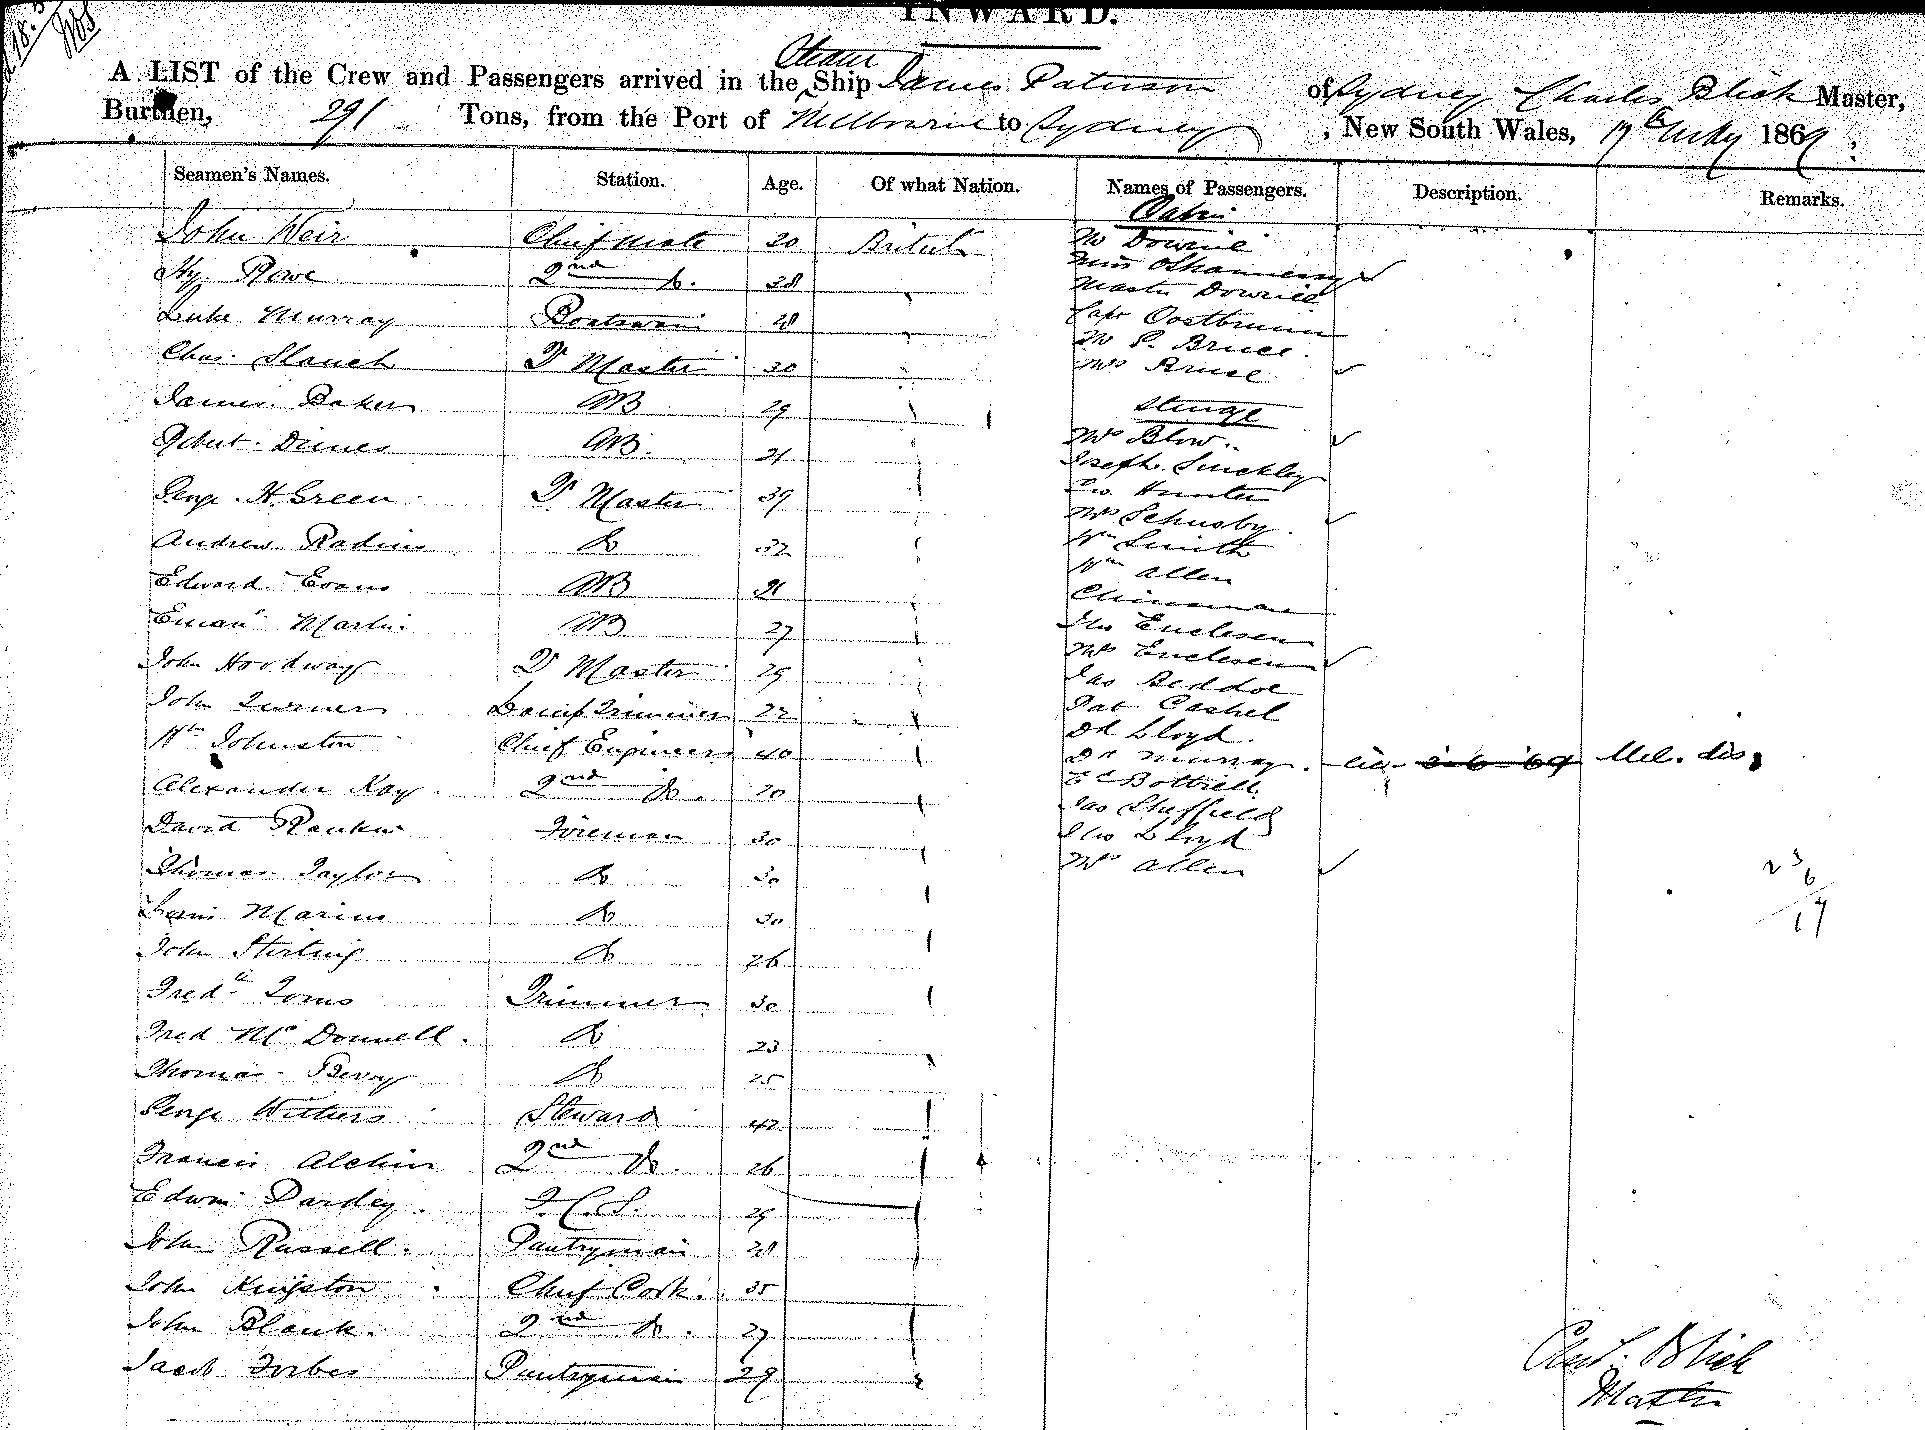 INWARD.
Steamer
A LIST of the Crew and Passengers arrived in the Ship James Paterson of Sydney Charles Blick Master,
Burthen, 291 Tons, from the Port of Melbourne to Sydney, New South Wales, 17th July 1869
Seamen's Names. Station. Age. Of what Nation. Names of Passengers. Description. Remarks.
Cabin
John Weir Chief Mate 30 British Mr Downie
Hy Rowe 2nd Do. 28 Miss OShannessy
Master Downie
Luke Murray Boatswain 28 Capt
Mr P. Bruce.
Chas. Slauch Qr Master 30 Mrs Bruce
James Baker AB 29 Steerage
Robert Dimes AB. 21 Mrs Blow.
Joseph
George H. Green Qr Master 39 Hunter
Mrs
Andrew Radius Do 32 Wm Smith
Edward Evans AB 21 Wm Allen
Chinaman
Eman Martin AB 27 Jno
Mrs
John Hoodway Qr Master 29 Jas Beddoe
John Turner Lamp Trimmer 22 Pat Cashel
Ed Lloyd.
Wm Johnston Chief Engineer 40 Dr Murray. 3 6 69 Mel. dis.
Alexander Kay 2nd Do. 30 Ed Bottrell.
Jas Sheffield
David Rankin Fireman 30 Jno Lloyd
Thomas Taylor Do 30 Mrs Allen
23
6
17
Louis Marius Do 30
John Stirling Do 26
Fredk Toms Trimmer 30
Fred McDonnell. Do 23
Thomas Berry Do 25
George Withers Steward 42
Francis Alchin 2nd Do. 26
Edwin Pardey. F.C.S. 29
John Russell. Pantryman 28
John Kingston Chief Cook. 35
John Blank. 2nd Do. 27
Jacob Forbes Pantryman 29
Chas. Blick
Master